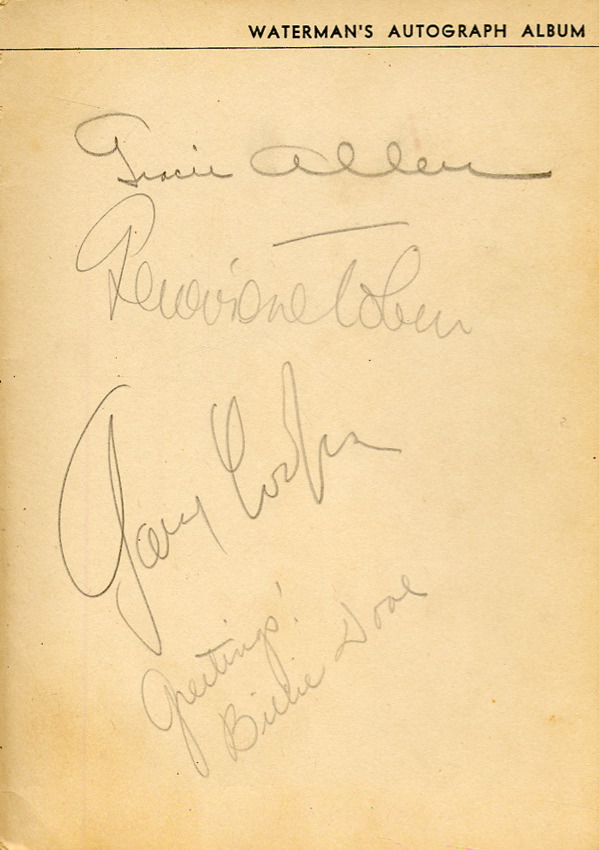 WATERMAN'S AUTOGRAPH ALBUM
Gracie Allen
Genevieve Tobin
Gary Cooper
Greetings!
Billie Dove